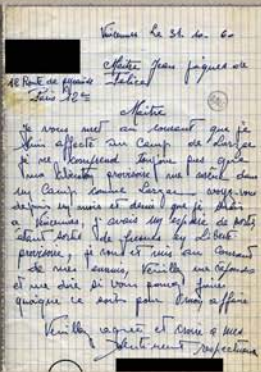 Vincennes Le 31 10 60
Maitre Jean Jaques de
Felice
12 Route de
Paris 12e
Maitre
Je vous met au courant que je
suis affecté au Camp de Larzac
je ne comprend toujour pas que
ma liberté provisoire me mène dans
un Camp comme Larzac voyez vous
depuis un mois et demie que je suis
a Vincennes, j'avais un espoir de sortir
étant sortie de fresnes en Liberté
provisoire, je vous ai mis au Courant
de mes ennuis, Veuillez me répondre
et me dire si vous pouvez faire
quoique ce soit pour mon affaire
Veuillez agréer et croire a mes
sentiment respectueux